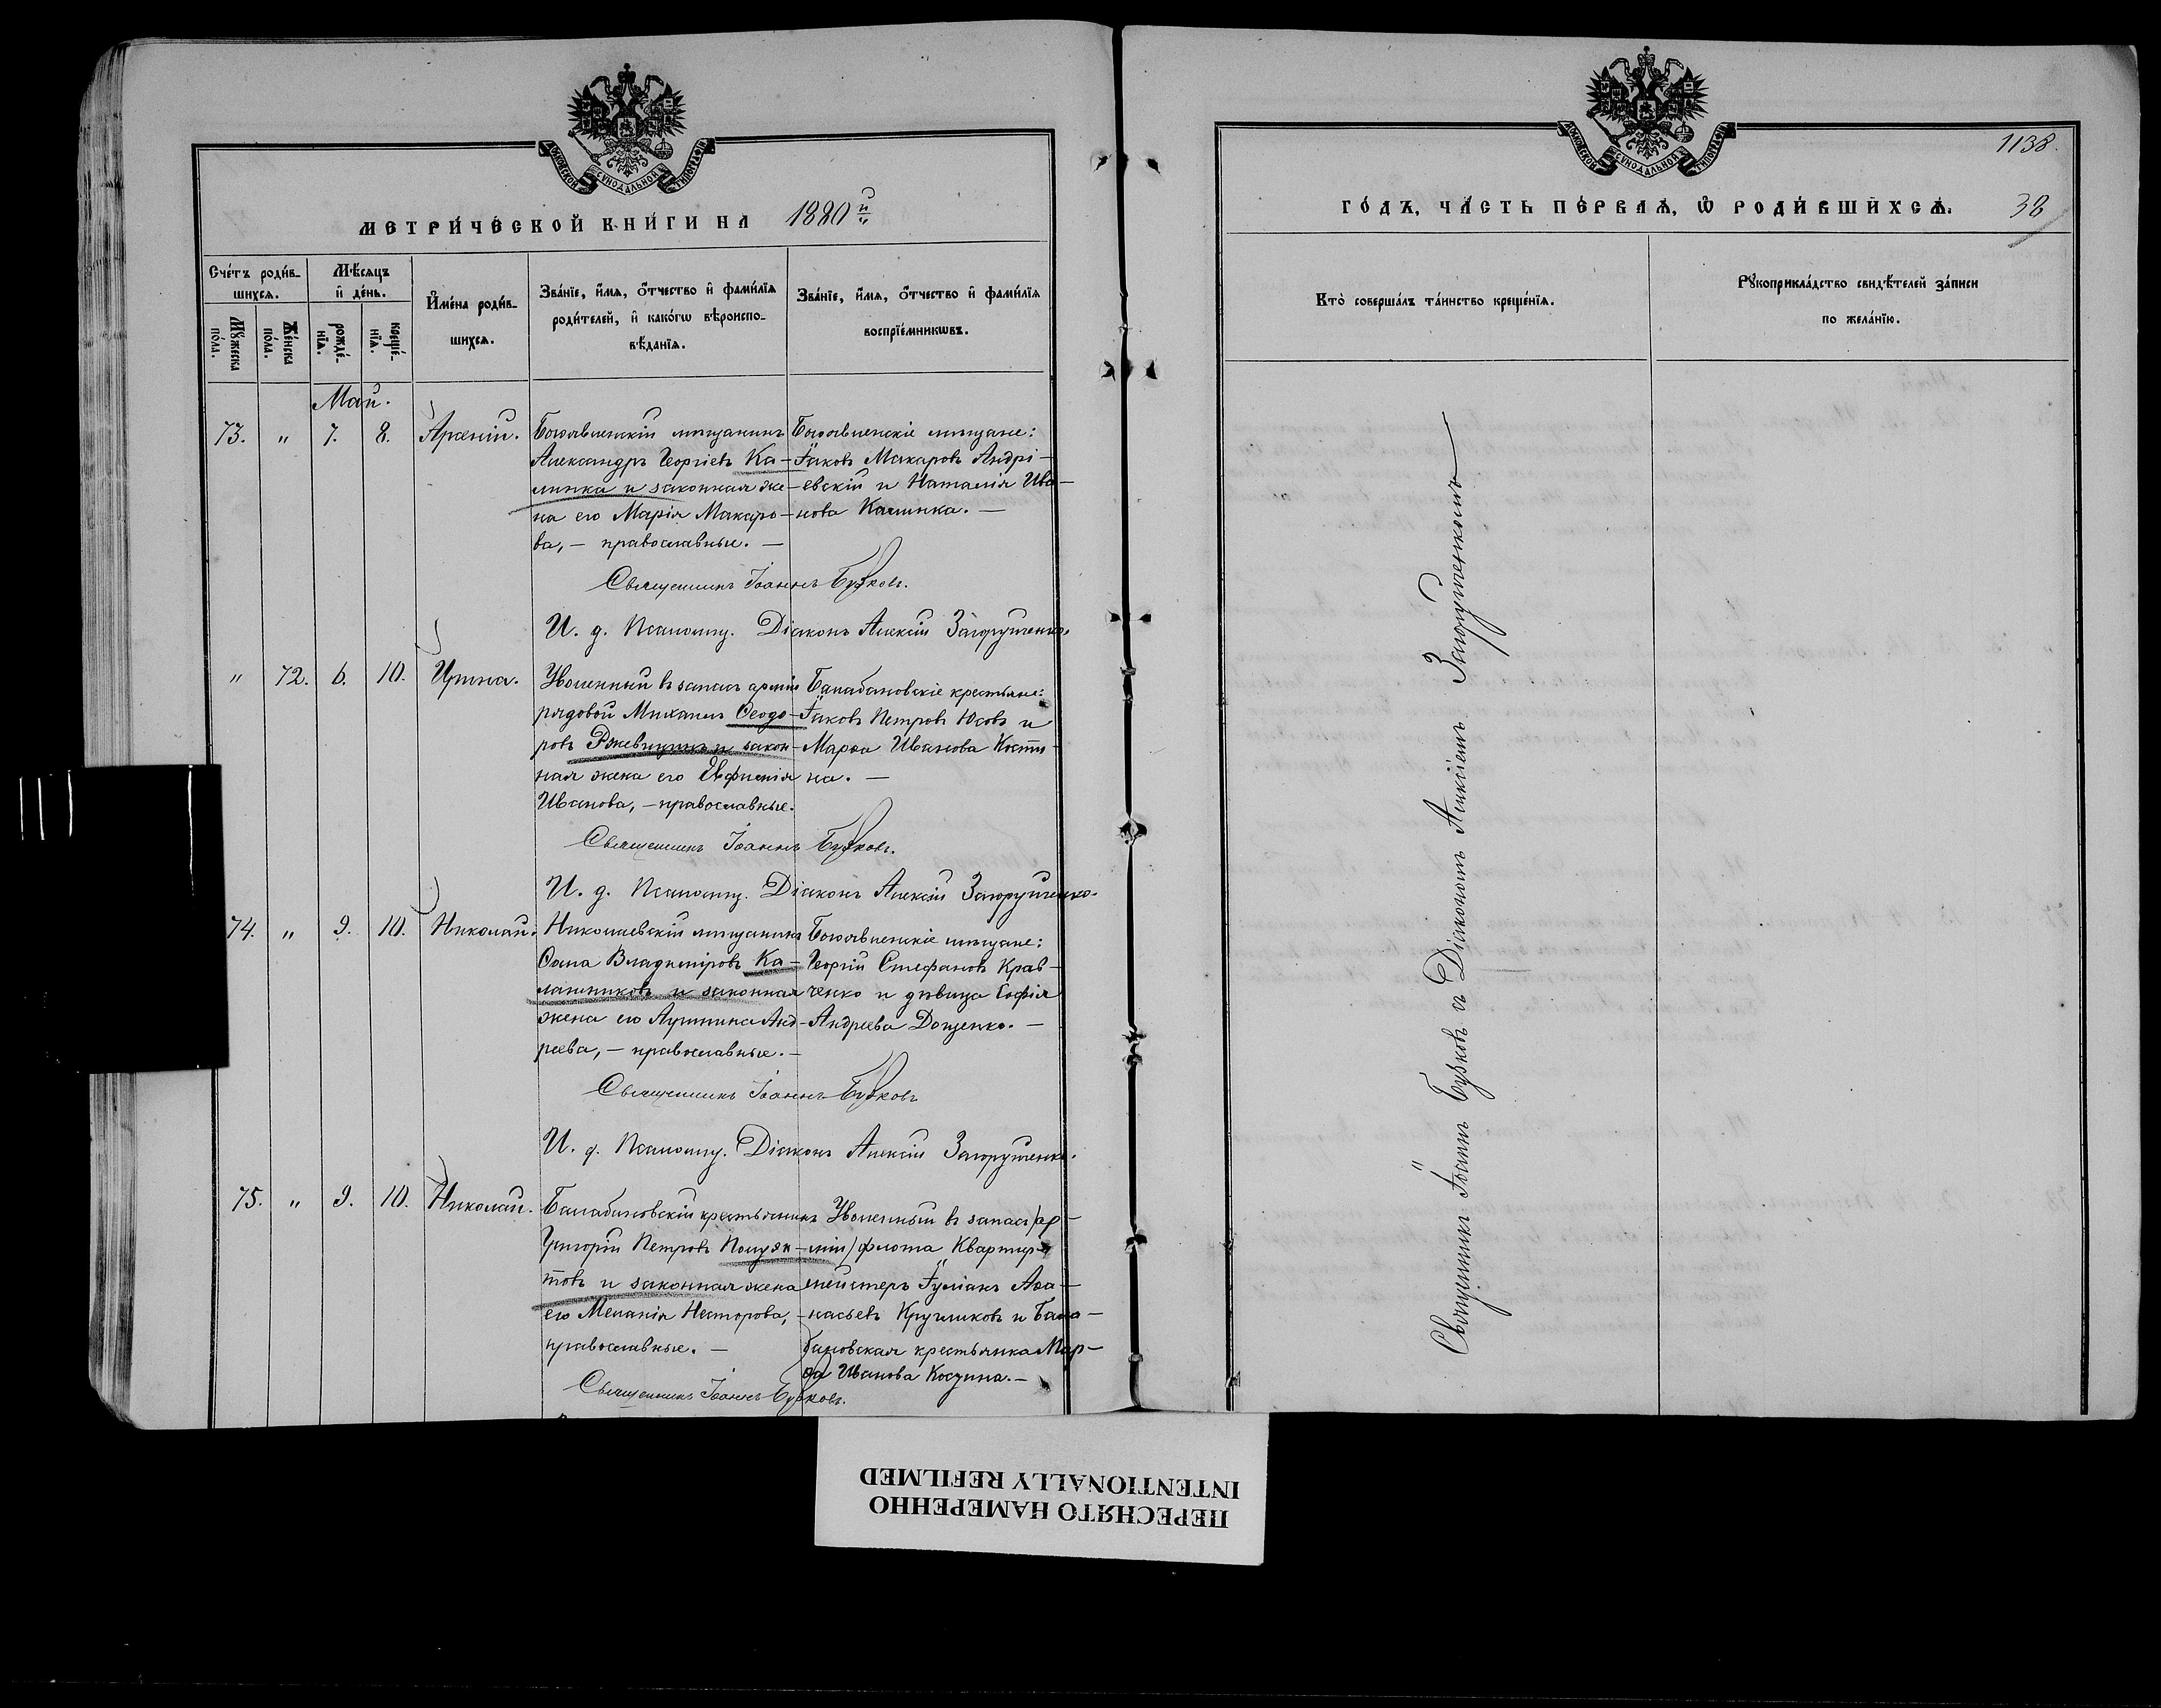 МОСКОВСКОЙ СѴНОДАЛЬНОЙ ТИПОГРАФІИ
МЕТРИ́ЧЕСКОЙ КНИ́ГИ НА 1880й
Сче́тъ роди́в-
шихсѧ.
Мꙋ́жеска
по́ла.
Же́нска
по́ла.
Мѣ́сѧцъ
и҆ де́нь.
рожде́-
нїѧ.
креще́-
нїѧ.
И҆мена̀ роди́в-
шихсѧ.
Зва́нїе, и҆́мѧ, ѻ҆́тчество и҆ фами́лїѧ
роди́телей, и҆ како́гѡ вѣроиспо-
вѣ́данїѧ.
Зва́нїе, и҆́мѧ, ѻ҆́тчество и҆ фами́лїѧ
воспрїе́мникѡвъ.
Май.
73. " 7. 8. Арсеній.
Богоявленскій мѣщанинъ
Александръ Георгіевъ Ка-
линка и законная же-
на его Марія Макаро-
ва, - православные. -
Богоявленскіе мѣщане:
Іаковъ Макаровъ Андрі-
евскій и Наталія Ива-
нова Калинка. -
Священникъ Іоаннъ Бузковъ.
И. д. Псаломщ. Діаконъ Алексій Загорульченко.
" 72. 6. 10. Ирина.
Уволенный въ запасъ арміи
рядовой Михаилъ Ѳеодо-
ровъ и закон-
ная жена его Евфимія
Иванова, - православные.
Балабановскіе крестьяне:
Іаковъ Петровъ Юсовъ и
Марѳа Иванова Кости-
на. -
Священникъ Іоаннъ Бузковъ.
И. д. Псаломщ. Діаконъ Алексій Загорульченко.
74. " 9. 10. Николай.
Николаевскій мѣщанинъ
Ѳома Владиміровъ Ка-
лашниковъ и законная
жена его Анд-
реева, - православные. -
Богоявленскіе мѣщане:
Георгій Стефановъ Крав-
ченко и дѣвица Софія
Андреева Доценко. -
Священникъ Іоаннъ Бузковъ
И. д. Псаломщ. Діаконъ Алексій Загорульченко.
75. " 9. 10. Николай.
Балабановскій крестьянинъ
Григорій Петровъ Полуэк-
товъ и законная жена
его Меланія Несторова, -
православные. -
Уволенный въ запасъ /ар-
міи/ флота Квартир-
мейстеръ Іуліанъ Аѳа-
насьевъ Кругликовъ и Бала-
бановская крестьянка Мар-
ѳа Иванова Костина. -
Священникъ Іоаннъ Бузковъ.
МОСКОВСКОЙ СѴНОДАЛЬНОЙ ТИПОГРАФІИ
1138.
ГО́ДЪ, ЧА́СТЬ ПЕ́РВАѦ, Ѡ҆ РОДИ́ВШИХСѦ. 38
Кто̀ соверша́лъ та́инство креще́нїѧ.
Рꙋкоприкла́дство свидѣ́телей за́писи
по жела́нїю.
Священникъ Іоаннъ Бузковъ съ Діакономъ Алексіемъ Загорульченкомъ
ПЕРЕСНЯТО НАМЕРЕННО
INTENTIONALLY REFILMED